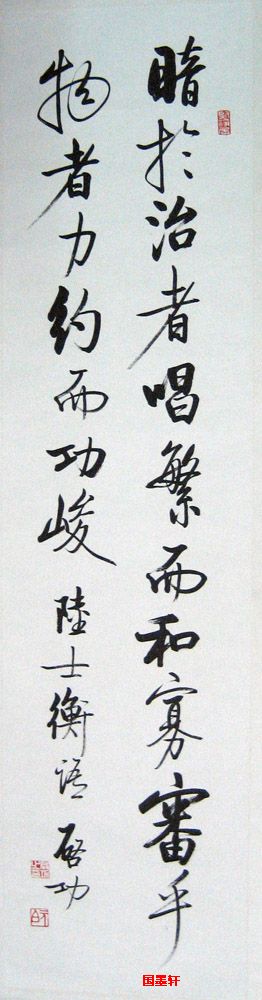 暗於治者唱繁而和寡審乎
物者力約而功峻 陸士衡語 啓功
国墨轩